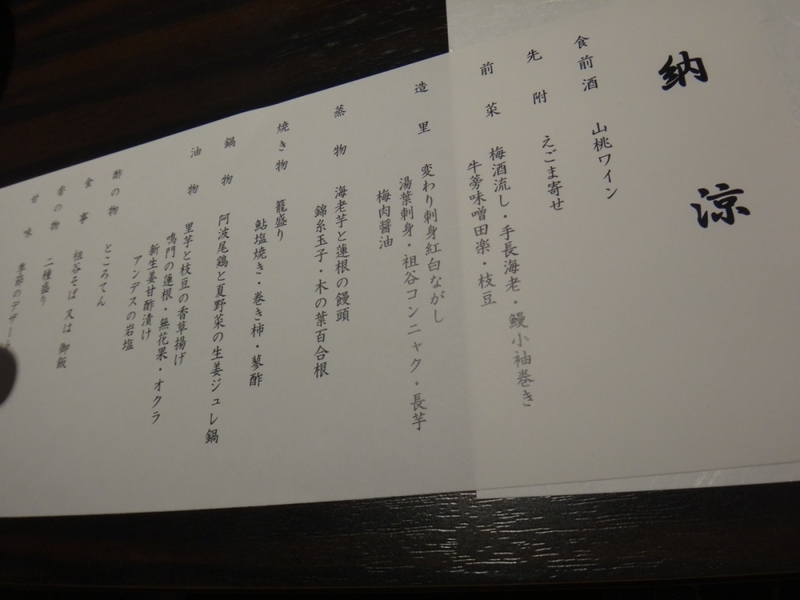 納涼
食前酒 山桃ワイン
先附 えごま寄せ
前菜 梅酒流し・手長海老・鰻小袖巻き
牛蒡味噌田楽・枝豆
造里 変わり刺身紅白ながし
湯葉刺身・祖谷コンニャク・長芋
梅肉醤油
蒸物 海老芋と蓮根の饅頭
錦糸玉子・木の葉百合根
焼き物 籠盛り
鮎塩焼き・巻き柿・蓼酢
鍋物 阿波尾鶏と夏野菜の生姜ジュレ鍋
油物 里芋と枝豆の香草揚げ
鳴門の蓮根・無花果・オクラ
新生姜甘酢漬け
アンデスの岩塩
酢の物 ところてん
食事 祖谷そば 又は 御飯
香の物 二種盛り
甘味 季節のデザート